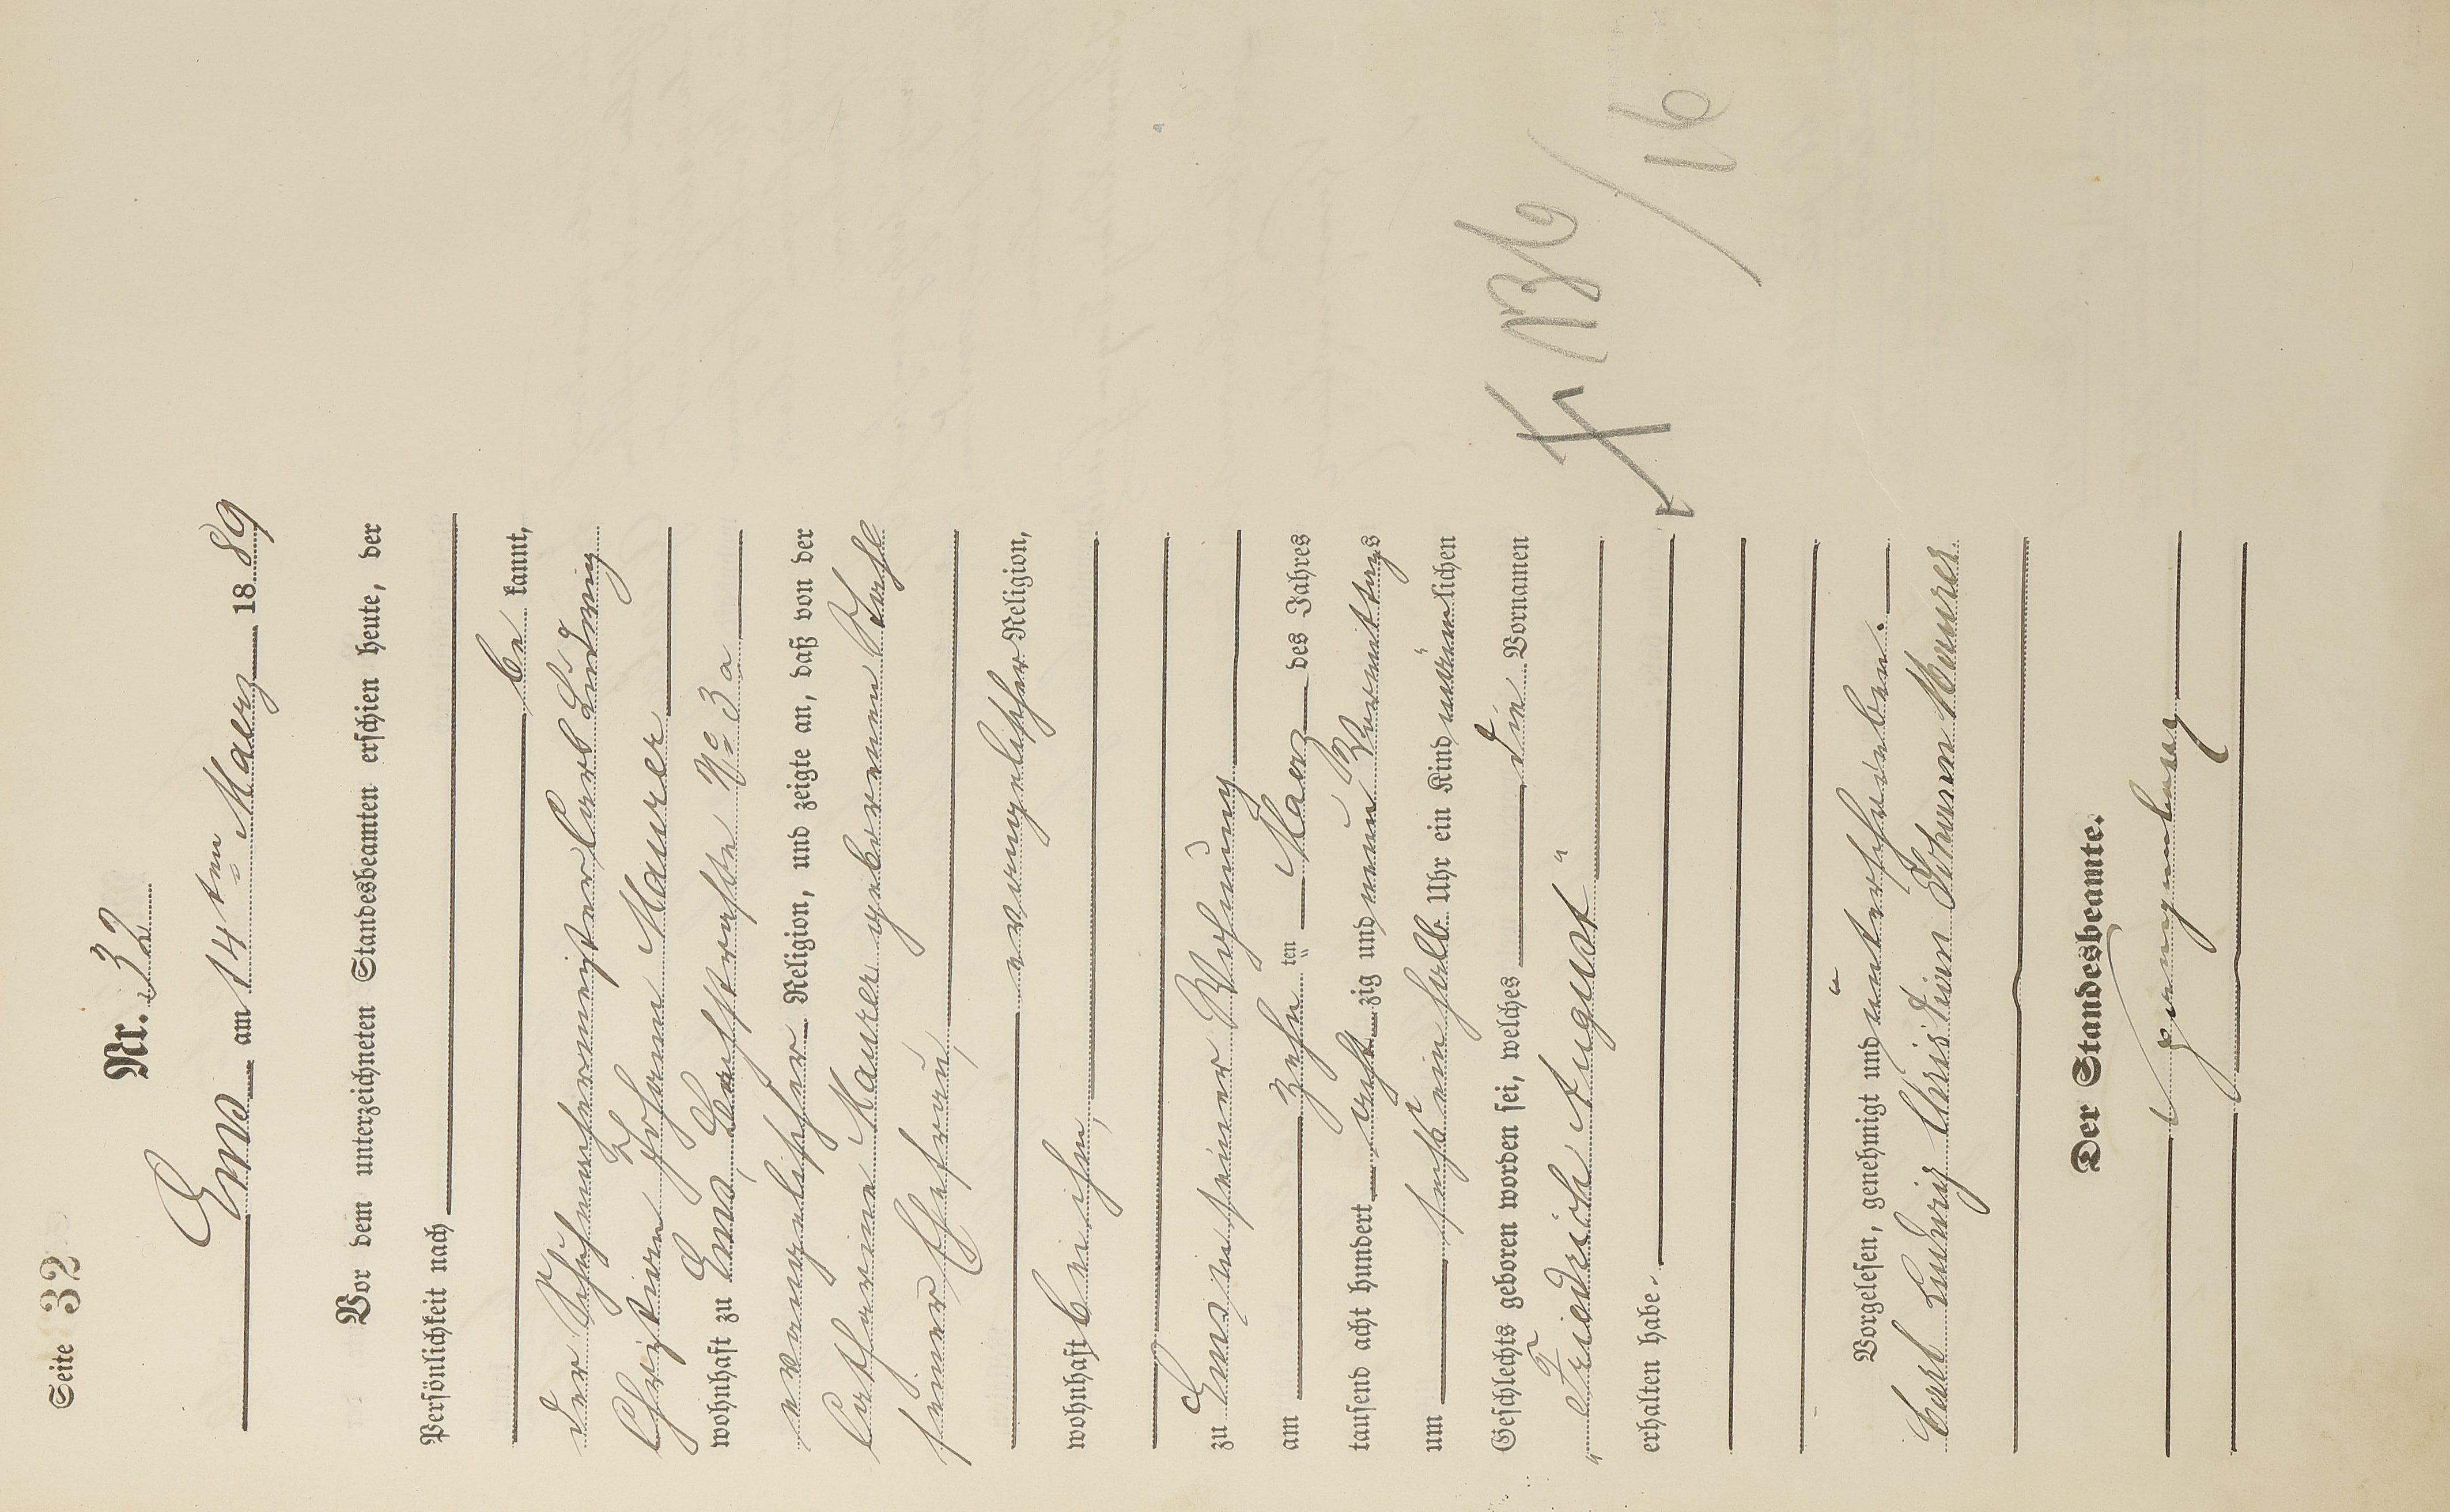 Seite 32
Nr. 32
Ems am 14ten Maerz 1889
Vor dem unterzeichneten Standesbeamten erschien heute, der
Persönlichkeit nach
be kannt,
der Schuhmachermeister Carl Ludwig
Christian Johann Maurer
wohnhaft zu Ems, No 3a
evangelischer Religion, und zeigte an, daß von der
Catharine Maurer geborenen
seiner Ehefrau,
evangelischer Religion,
wohnhaft bei ihm,
zu Ems in seiner Wohnung
am zehn ten Maerz des Jahres
tausend acht hundert acht zig und neun Vormittags
um sechs ein halb Uhr ein Kind männlichen
Geschlechts geboren worden sei, welches die Vornamen
"Friedrich August"
erhalten habe.
Vorgelesen, genehmigt und unterschrieben.
Carl Ludwig Christian Johann Maurer
Der Standesbeamte.
136/16